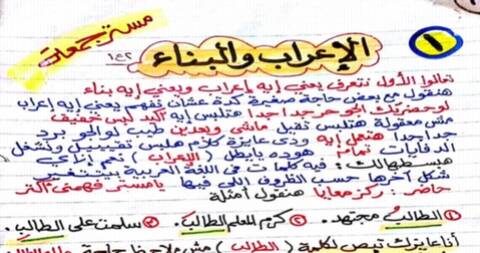 مستر جمعة
١
الإعراب والبناء
تعالوا الأول نتعرف يعني إيه إعراب ويعني إيه بناء
هنقول مع بعض حاجة صغيرة كدة عشان نفهم يعني إيه إعراب
لو حضرتك الجو حر جدا جدا هتلبس إيه أكيد لبس خفيف
مش معقولة هتلبس تقيل ماشي وبعدين طيب لو الجو برد
جدا جدا هتعمل إيه ودي عايزة كلام هلبس تقيل وشغل
الدفايات تمام هوده يا بطل (الإعراب) نعم إزاي
هبسطهالك : فيه كلمات في اللغة العربية بيتغير
شكل آخرها حسب الظروف اللي فيها يا مستر فهمني أكتر
حاضر : ركز معايا هنقول أمثلة
١ الطالبُ مجتهد. ٢ كرم المعلم الطالبَ. ٣ سلمت على الطالبِ.
أنا عايزك تبص لكلمة (الطالب) مش